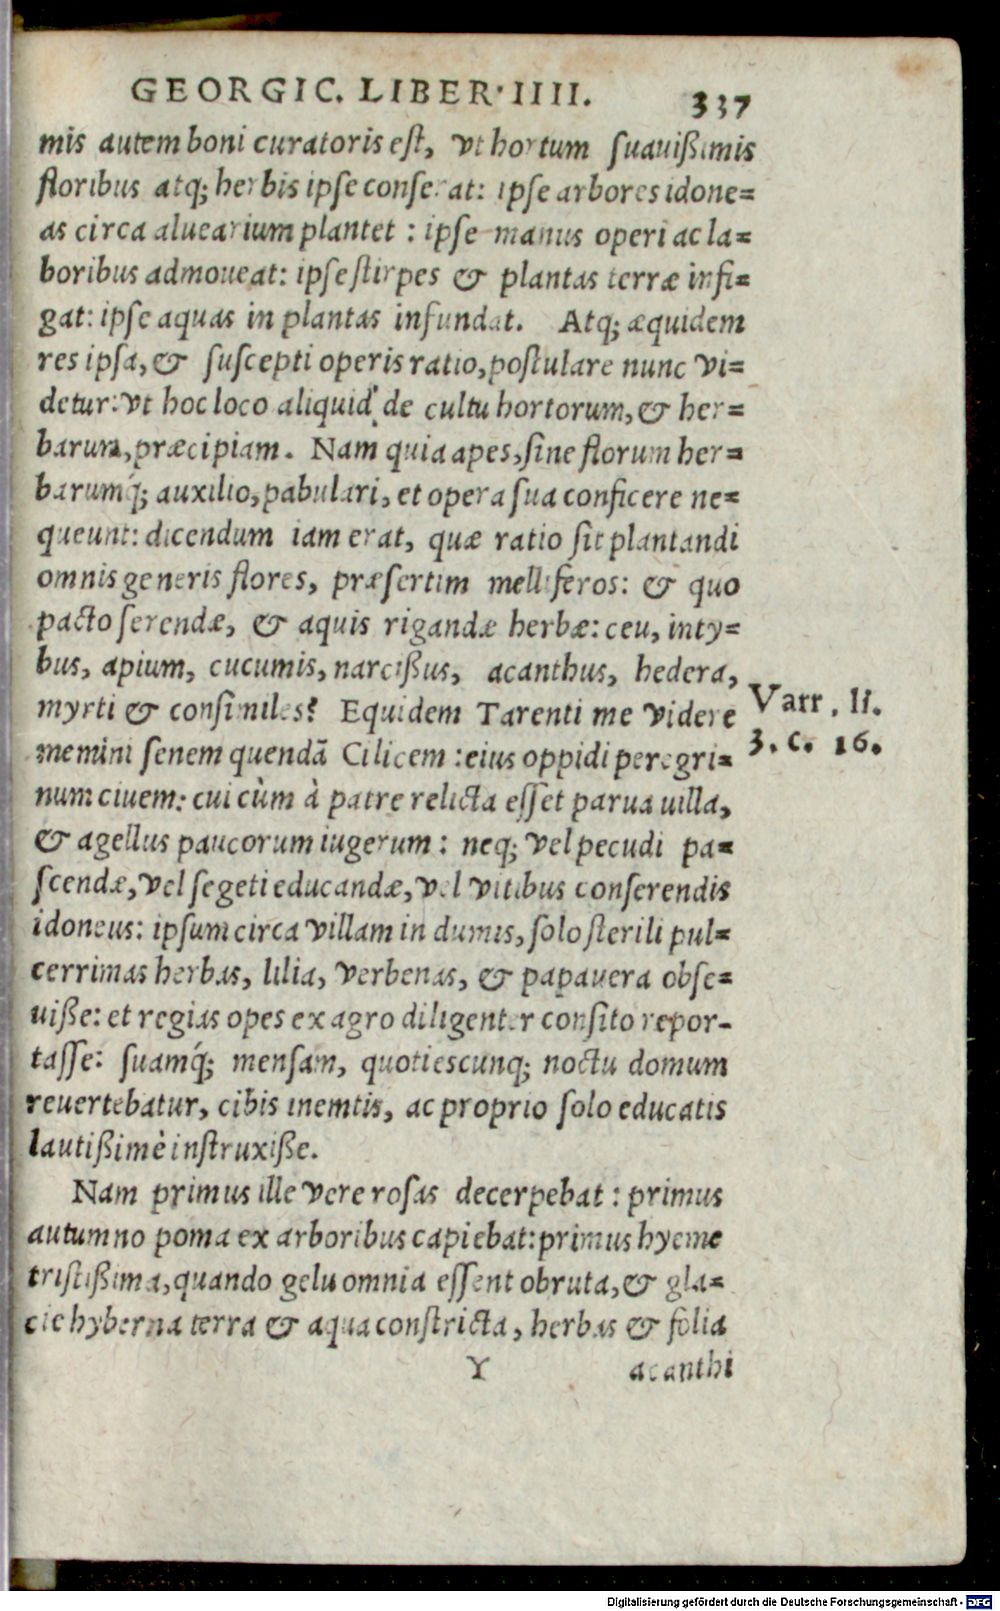 GEORGIC. LIBER·IIII. 337
mis autem boni curatoris est, vt hortum suauißimis
floribus atq; herbis ipse conserat: ipse arbores idone=
as circa aluearium plantet : ipse manus operi ac la=
boribus admoueat: ipse stirpes & plantas terræ infi=
gat: ipse aquas in plantas infundat. Atq; æquidem
res ipsa, & suscepti operis ratio, postulare nunc vi=
detur: vt hoc loco aliquid de cultu hortorum, & her=
barum, præcipiam. Nam quia apes, sine florum her=
barumq́; auxilio, pabulari, et opera sua conficere ne=
queunt: dicendum iam erat, quæ ratio sit plantandi
omnis generis flores, præsertim melliferos: & quo
pacto serendæ, & aquis rigandæ herbæ: ceu, inty=
bus, apium, cucumis, narcißus, acanthus, hedera,
myrti & consimiles? Equidem Tarenti me videre
memini senem quendā Cilicem : eius oppidi peregri=
num ciuem: cui cùm à patre relicta esset parua uilla,
& agellus paucorum iugerum : neq; vel pecudi pa=
scendæ, vel segeti educandæ, vel vitibus conserendis
idoneus: ipsum circa villam in dumis, solo sterili pul=
cerrimas herbas, lilia, verbenas, & papauera obse=
uiße: et regias opes ex agro diligenter consito repor-
tasse: suamq́; mensam, quotiescunq; noctu domum
reuertebatur, cibis inemtis, ac proprio solo educatis
lautißimè instruxiße.
Nam primus ille vere rosas decerpebat : primus
autumno poma ex arboribus capiebat: primus hyeme
tristißima, quando gelu omnia essent obruta, & gla=
cie hyberna terra & aqua constricta, herbas & folia
Y acanthi
Varr. li.
3. c. 16.
Digitalisierung gefördert durch die Deutsche Forschungsgemeinschaft - DFG